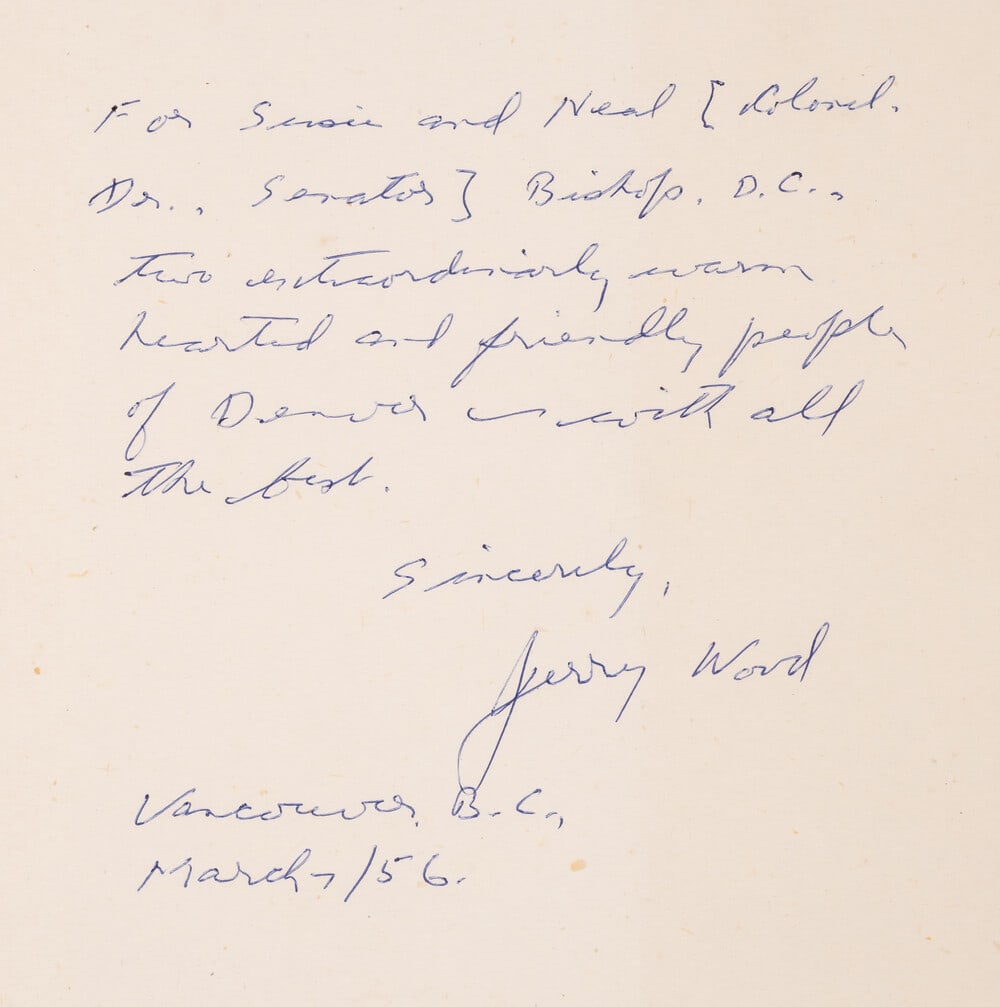 For Susie and Neal [Colonel.
Dr., Senator] Bishop, D.C.,
two extraordinarly warm
hearted and friendly people
of Denver — with all
the best.
Sincerely,
Jerry Wood
Vancouver, B.C.,
March /56.